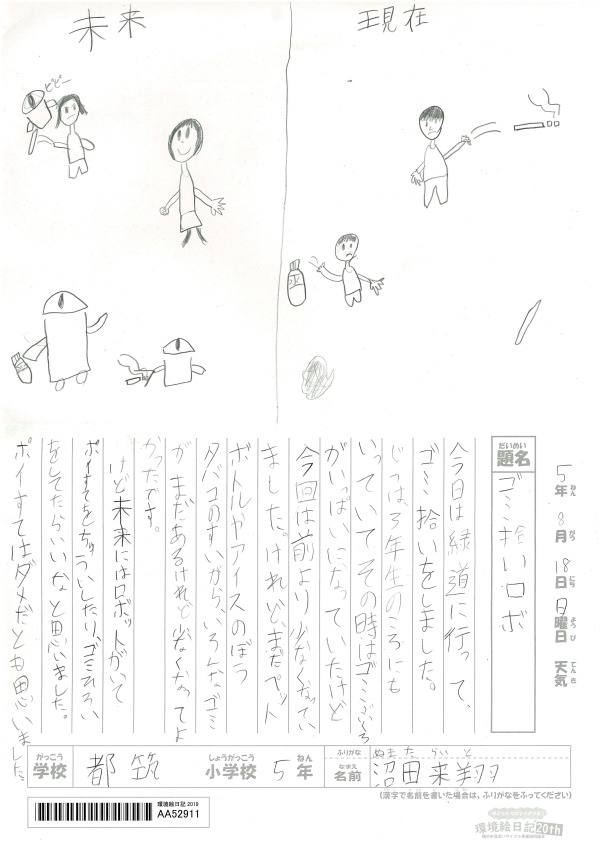 未来
現在
ピピー
5年 8月 18日 日曜日 天気
ねん がつ にち ようび てんき
だいめい
題名
ゴミ拾いロボ
今日は緑道に行って、
ゴミ拾いをしました。
じつは3年生のころにも
いっていてその時はゴミぶくろ
がいっぱいになっていたけど
今回は前より少なくなってい
ました。けれど、まだペット
ボトルやアイスのぼう
タバコのすいがら、いろんなゴミ
がまだあるけれど少なくなってよ
かったです。
けど未来にはロボットがいて
ポイすてをちゅういしたり、ゴミひろい
をしてたらいいなと思いました。
ポイすてはダメだとも思いました。
がっこう しょうがっこう ねん ふりがな ぬまた らいと
学校 都筑 小学校 5年 なまえ 名前 沼田来翔
(漢字で名前を書いた場合は、ふりがなをふってください)
環境絵日記2019
AA52911
環境絵日記20th